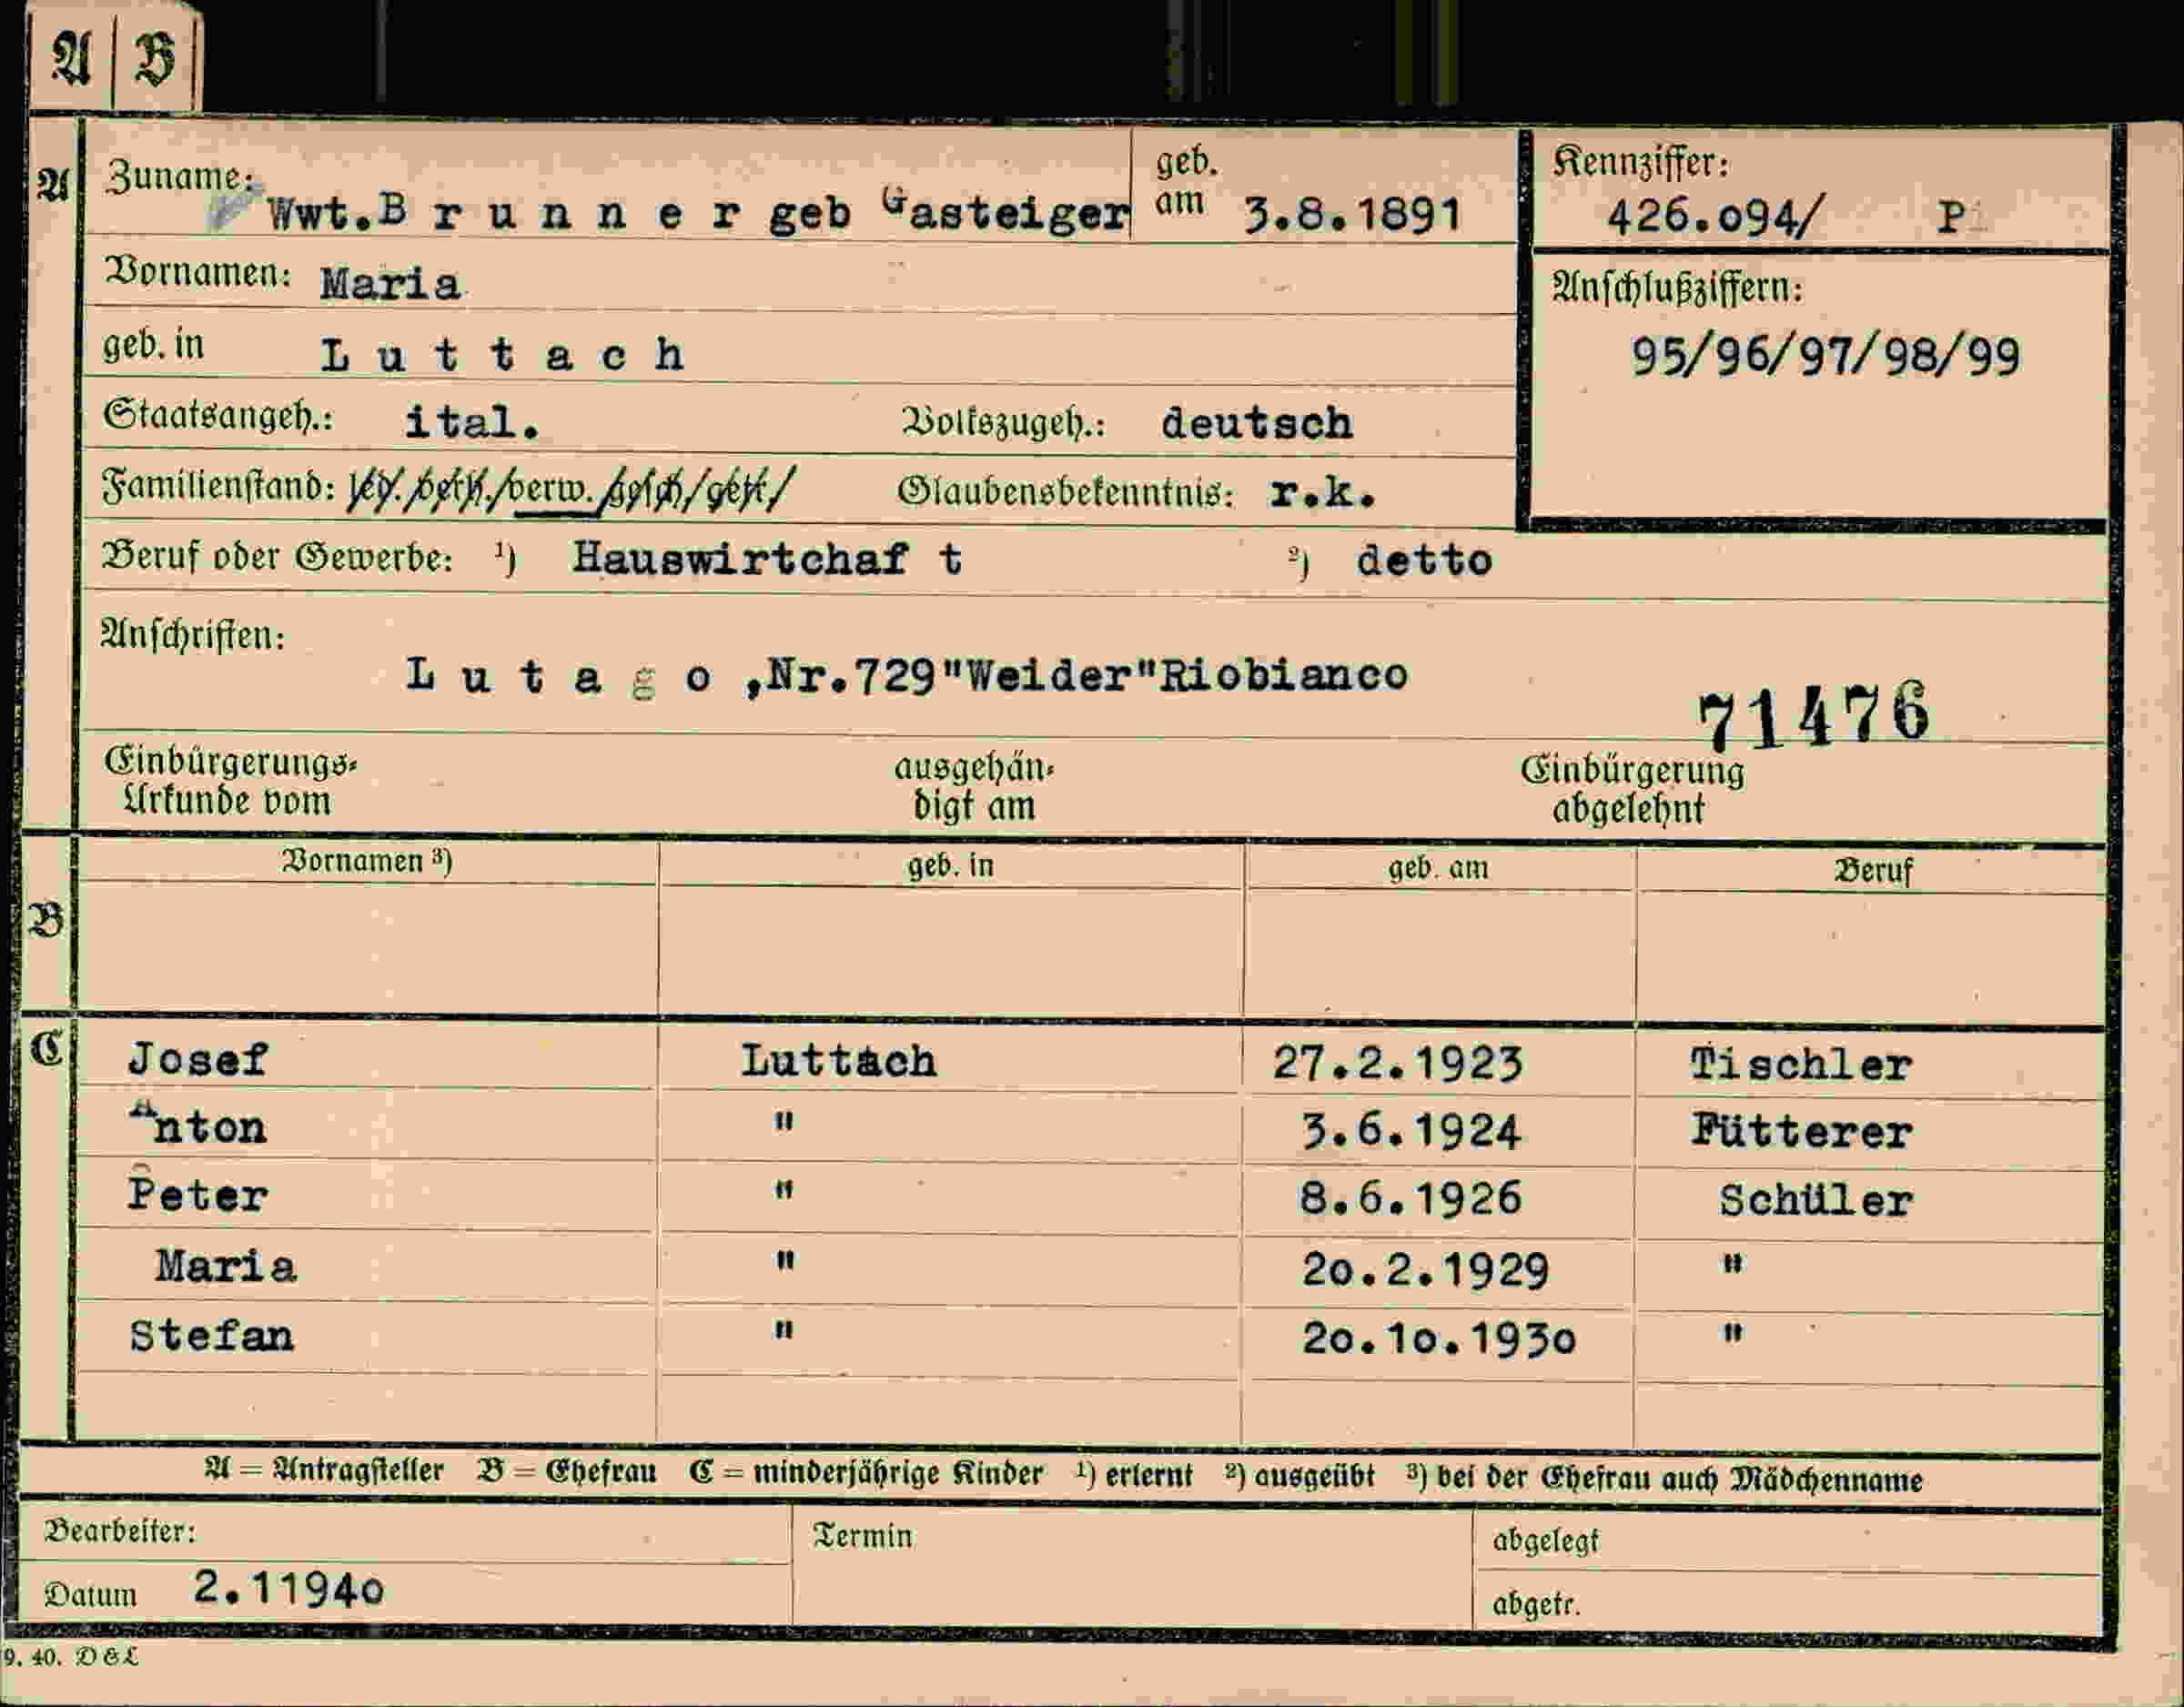 A B
A Zuname: Wwt.B r u n n e r geb Gasteiger geb. am 3.8.1891 Kennziffer: 426.094/ P
Vornamen: Maria Anschlußziffern:
geb. in L u t t a c h 95/96/97/98/99
Staatsangeh.: ital. Volkszugeh.: deutsch
Familienstand: led./verh./verw./gesch/getr/ Glaubensbekenntnis: r.k.
Beruf oder Gewerbe: ¹) Hauswirtchaf t ²) detto
Anschriften:
L u t a g o ,Nr.729"Weider"Riobianco
71476
Einbürgerungs- Urkunde vom ausgehän- digt am Einbürgerung abgelehnt
Vornamen ³) geb. in geb. am Beruf
B
C Josef Luttach 27.2.1923 Tischler
Anton " 3.6.1924 Fütterer
Peter " 8.6.1926 Schüler
Maria " 2o.2.1929 "
Stefan " 2o.1o.193o "
A = Antragsteller B = Ehefrau C = minderjährige Kinder ¹) erlernt ²) ausgeübt ³) bei der Ehefrau auch Mädchenname
Bearbeiter: Termin abgelegt
Datum 2.1194o abgetr.
9. 40. D & L